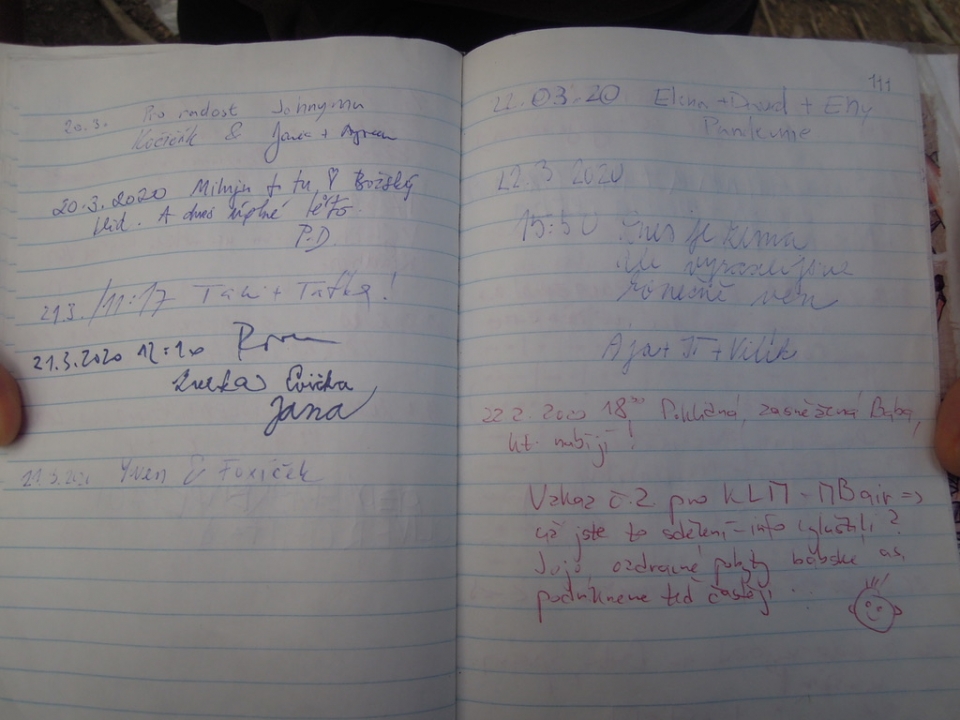 20.3. Pro radost Johnymu
Kočičák & Jana +
20.3.2020 Miluju to tu ♡ Božský
klid. A dnes úplné léto.
P.D
21.3./11:17 Táňi + Taťka!
21.3.2020 12:10
Lucka Evička
Jana
21.3.2020 Yven & Foxíček
111
22.03.20 Elena + David + Eny
22.3 2020
15:50 Dnes je zima
ale vyrazili jsme
konečně ven
Ája + Ji + Vilík
22.2.2020 18³⁰ Poklidná, zasněžená Bába,
kt. nabíjí!
Vzkaz č.2 pro KLM - MBair =>
už jste to sdělení - info vyluštili?
Jujú ozdravné pobyty bábské as.
podnikneme teď častěji